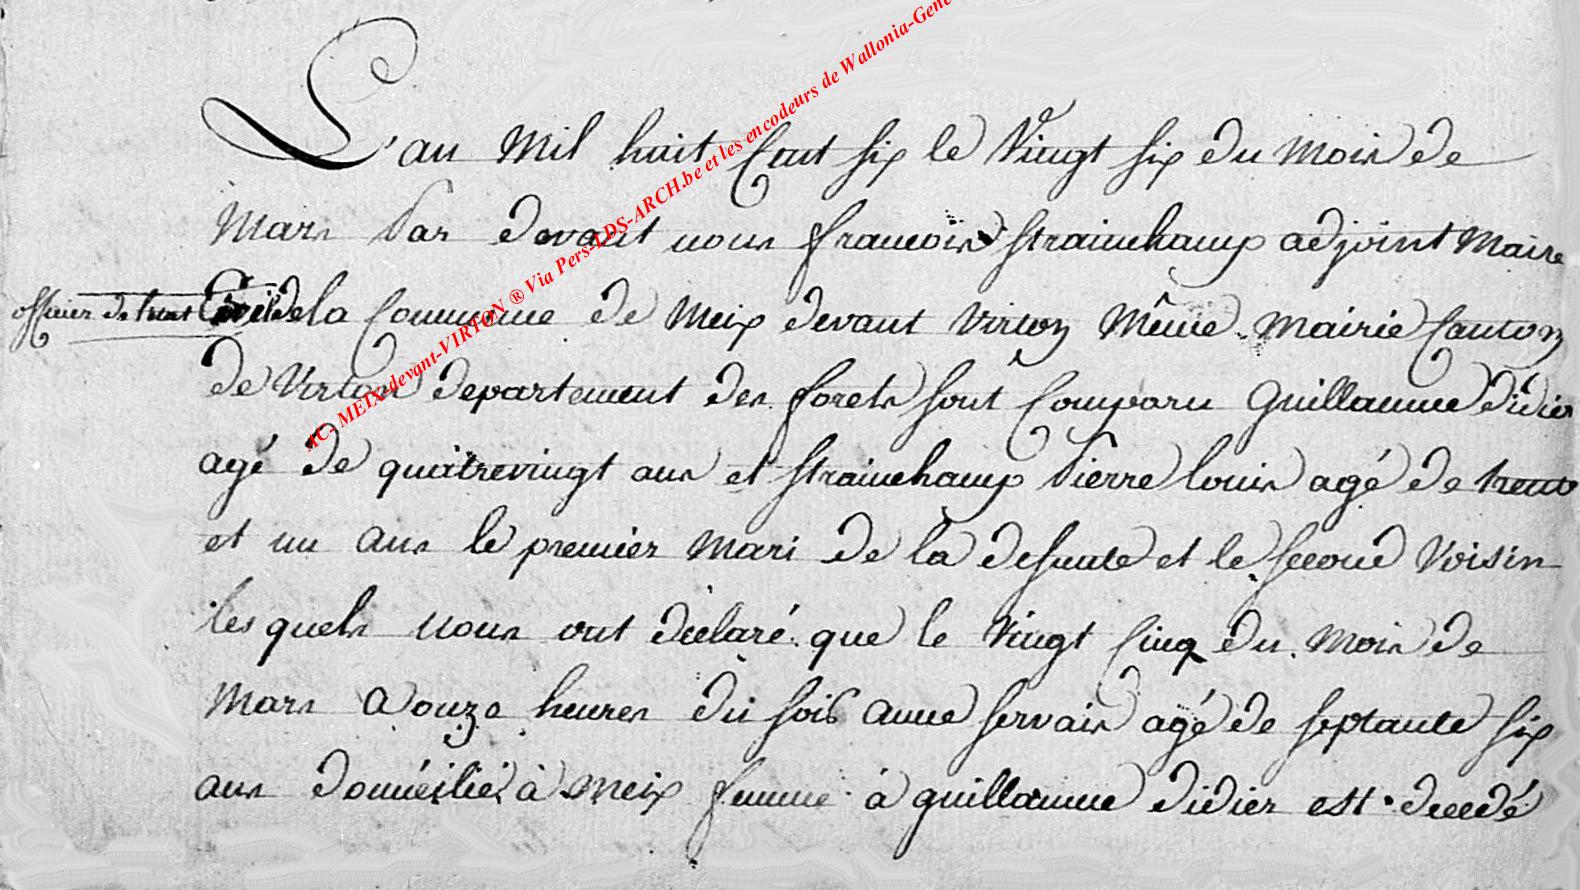 L'an mil huit Cent six le Vingt six du mois de
Mars Par devant nous francois strainchamp adjoint maire
officier de l'etat Civil de la Commune de Meix devant Virton Même Mairie Canton
de Virton departement des forets sont Comparu Guillaume didier
agé de quatrevingt ans et strainchamp Pierre louis agé de trente
et un ans le premier mari de la defunte et le second Voisin
les quels nous ont déclaré que le Vingt Cinq du mois de
Mars a onze heures du soir anne servais agé de septante six
ans domicilié à Meix femme à guillaume didier est decedé
AC- MEIX-devant-VIRTON ® Via Pers-LDS-ARCH.be et les encodeurs de Wallonia-Gene